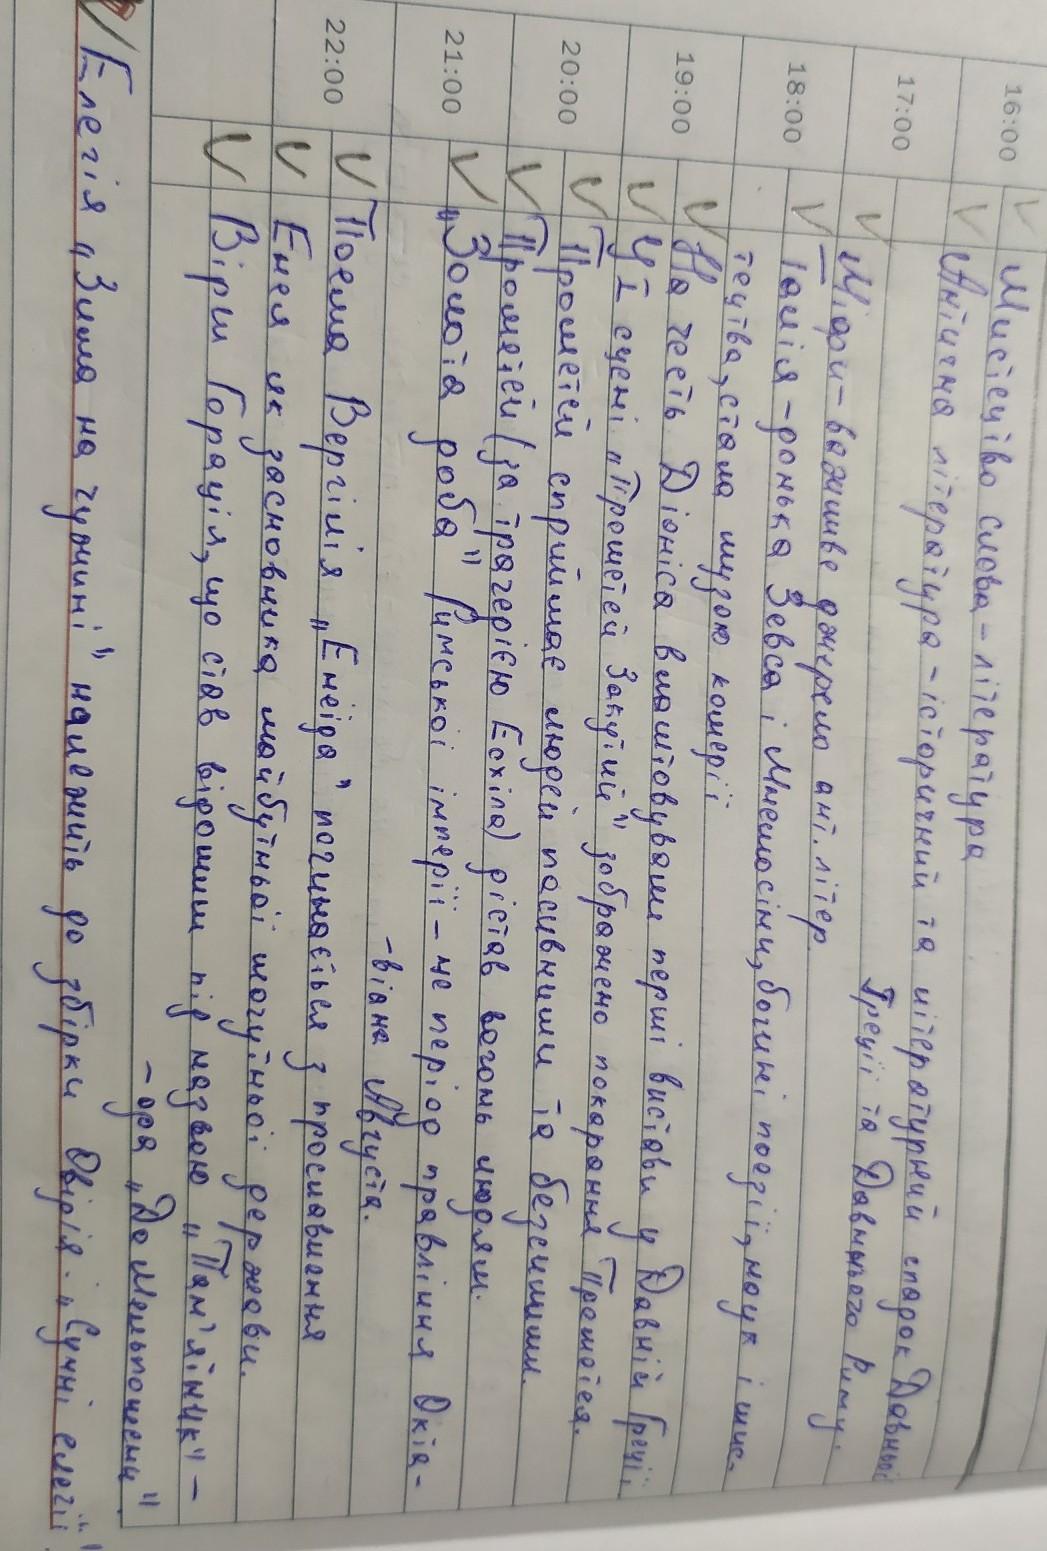 16:00
Мистецтво слова - література
Антична література - історичний та літературний спадок Давньої
17:00
Греції та Давнього Риму.
Міфи - важливе джерело ант. літер
18:00
Талія - донька Зевса і Мнемосіни, богині поезії, наук і мис-
тецтва, стала музою комедії
19:00
На честь Діоніса влаштовували перші вистави у Давній Греції
У I сцені „Прометей Закутий" зображено покарання Прометея.
20:00
Прометей сприймає людей пасивними та безсилими.
Прометей (за трагедією Есхіла) дістав вогонь людям.
21:00
„Золота доба" Римської імперії - це період правління Окта-
-віана Августа.
22:00
Поема Вергілія „Енеїда" починається з прославлення
Енея як засновника майбутньої могутньої держави.
Вірш Горація, що став відомим під назвою „Пам'ятник" -
- ода „До Мельпомени"
Елегія „Зима на чужині" належить до збірки Овідія „Сумні елегії"